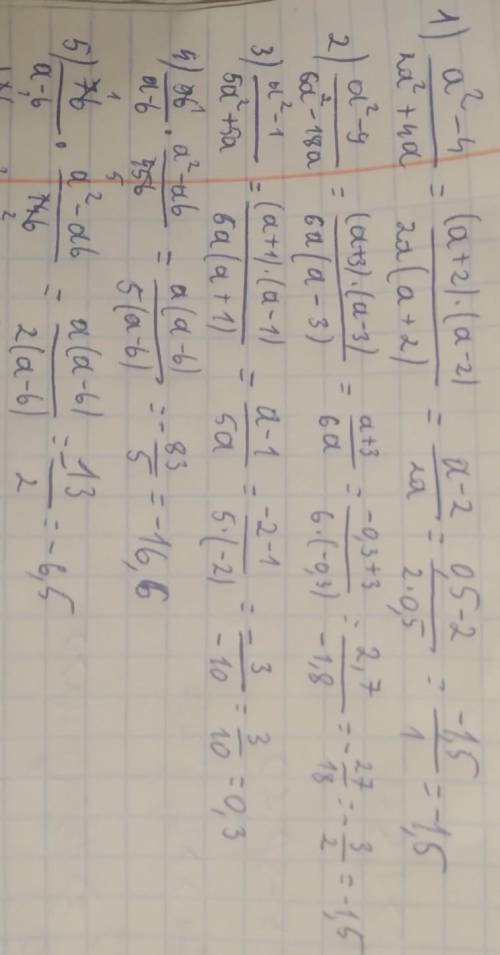 1) a²-4 / 2a²+4a = (a+2)·(a-2) / 2a(a+2) = a-2 / 2a = 0,5-2 / 2·0,5 = -1,5 / 1 = -1,5
2) a²-9 / 6a²-18a = (a+3)·(a-3) / 6a(a-3) = a+3 / 6a = -0,3+3 / 6·(-0,3) = 2,7 / -1,8 = -27/18 = -3/2 = -1,5
3) a²-1 / 5a²+5a = (a+1)·(a-1) / 6a(a+1) = a-1 / 5a = -2-1 / 5·(-2) = -3 / -10 = 3/10 = 0,3
4) / a-b · a²-ab / = a(a-b) / 5(a-b) = -83/5 = -16,6
5) 7b / a-b · a²-ab / 14b = a(a-b) / 2(a-b) = -13/2 = -6,5